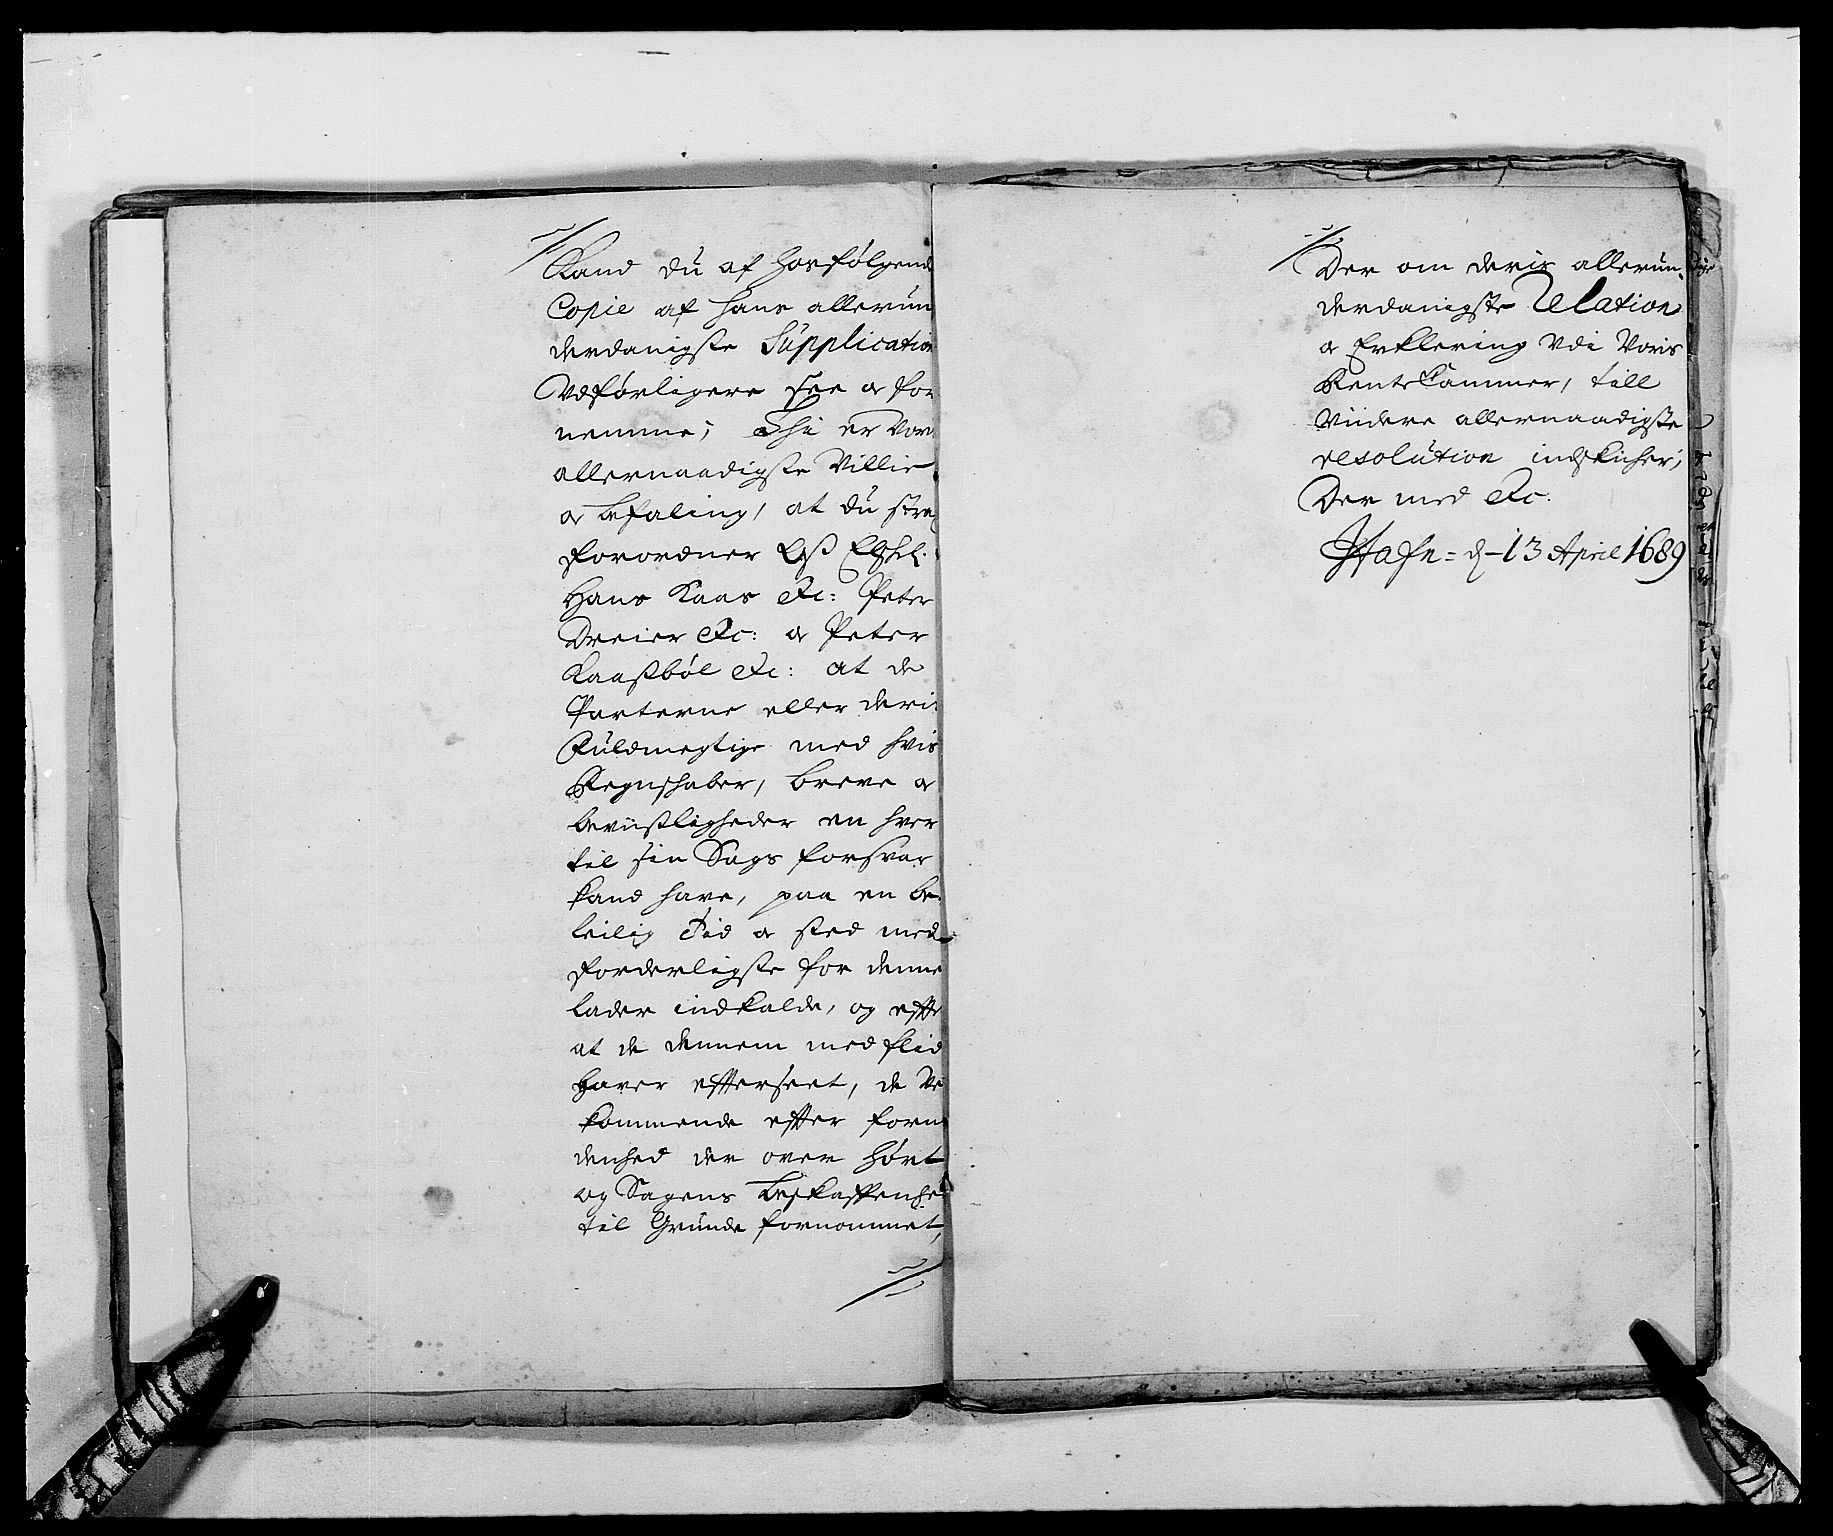 Kand du af hosfølgend
Copie af hans allerun
derdanigste Supplication
Vdførligere see og for
nemme; Thi er Vor
allernaadigste Villie
og befaling, at du stra
forordner Oß Elshel.
Hans Kaas &c: Peter
Dreier &c: og Peter
Kaaßbøl &c: at de
Parterne eller deri
Fuldmegtige med hvis
Regnschaber, breve og
beviißligheder en hver
til sin Sags forsvar
kand have, paa en be
leilig Tid og sted med
forderligste for denne
lader indkalde, og effte
at de dennem med flid
haver efferseet, de Ve
kommende effter forn
denhed der over hørt
og Sagens beskaffenhe
til Grunde fornommet,
Der om deris allerun
derdanigste Relation
og Erklering Vdi Voris
Rentekammer, till
Viidere allernaadigste
resolution indskicher,
Der med &c:
Hafn = d 13 April 1689